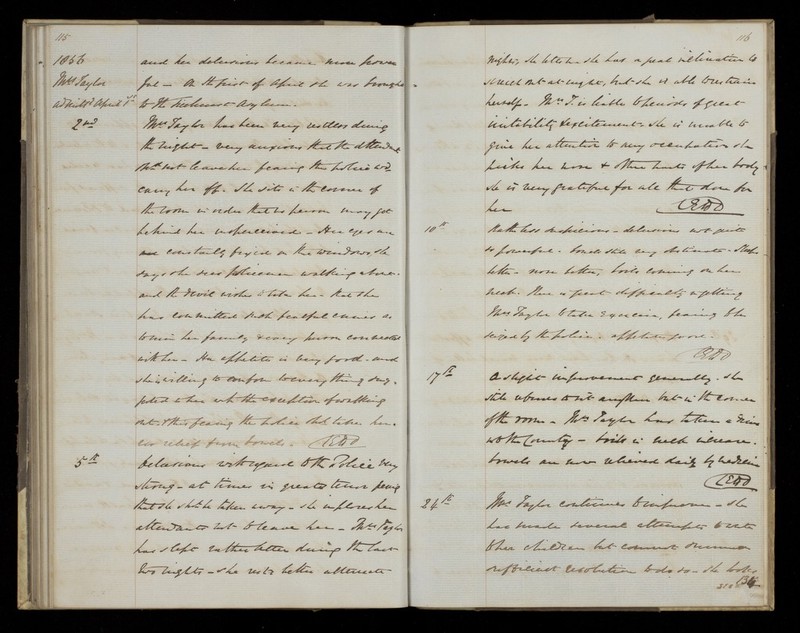 115
1856
Mrs Taylor
admitted April 1st
and her delusions became more power
ful — On the first of April she was brought
to the Ticehurst Asylum.
2nd
Mrs Taylor has been very restless during
the night — very anxious that the attendant
shd not leave her fearing the police wd
carry her off. She sits in the corner of
the room in order that no person may get
behind her unperceived — Her eyes are
constantly fixed on the windows she
says she sees policemen walking about
and the Devil wishes to take her. that she
has committed such fearful crimes as
to ruin her family & every person connected
with her — Her appetite is very good — and
she is willing to conform to everything sug-
gested to her with the exception of walking
out & this fearing the police shd take her.
no relief from bowels.
5th
Delusions with regard to the Police very
strong — at times in great terror fearing
that she shd be taken away — she implores her
attendants not to leave her — Mrs Taylor
has slept rather better during the last
two nights — she rests better alternate
116
nights, she tells me she has a great inclination to
scream out at night, but she is able to restrain
herself — Mrs T. is liable to periods of great
irritability & excitement. She is unable to
give her attention to any occupation she
picks her nose & other parts of her body
she is very grateful for all that is done for
her
10th
Rather less suspicious — delusions not quite
so powerful. bowels still very obstinate. Sleeps
better. nose better, boils coming on her
neck. There is great difficulty in getting
Mrs Taylor to take exercise, fearing to be
seized by the police — appetite good.
17th
A slight improvement generally. she
still refuses to sit anywhere but in the corner
of the room — Mrs Taylor has taken a drive
into the Country — boils in neck increase.
bowels are now relieved daily by medicine
24th
Mrs Taylor continues to improve — she
has made several attempts to write
to her children but cannot summon
sufficient resolution to do so — she looks